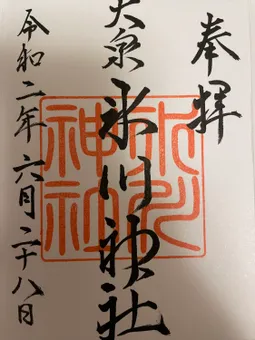 奉拝
大泉
氷川神社
令和二年六月二十八日
氷川
神社